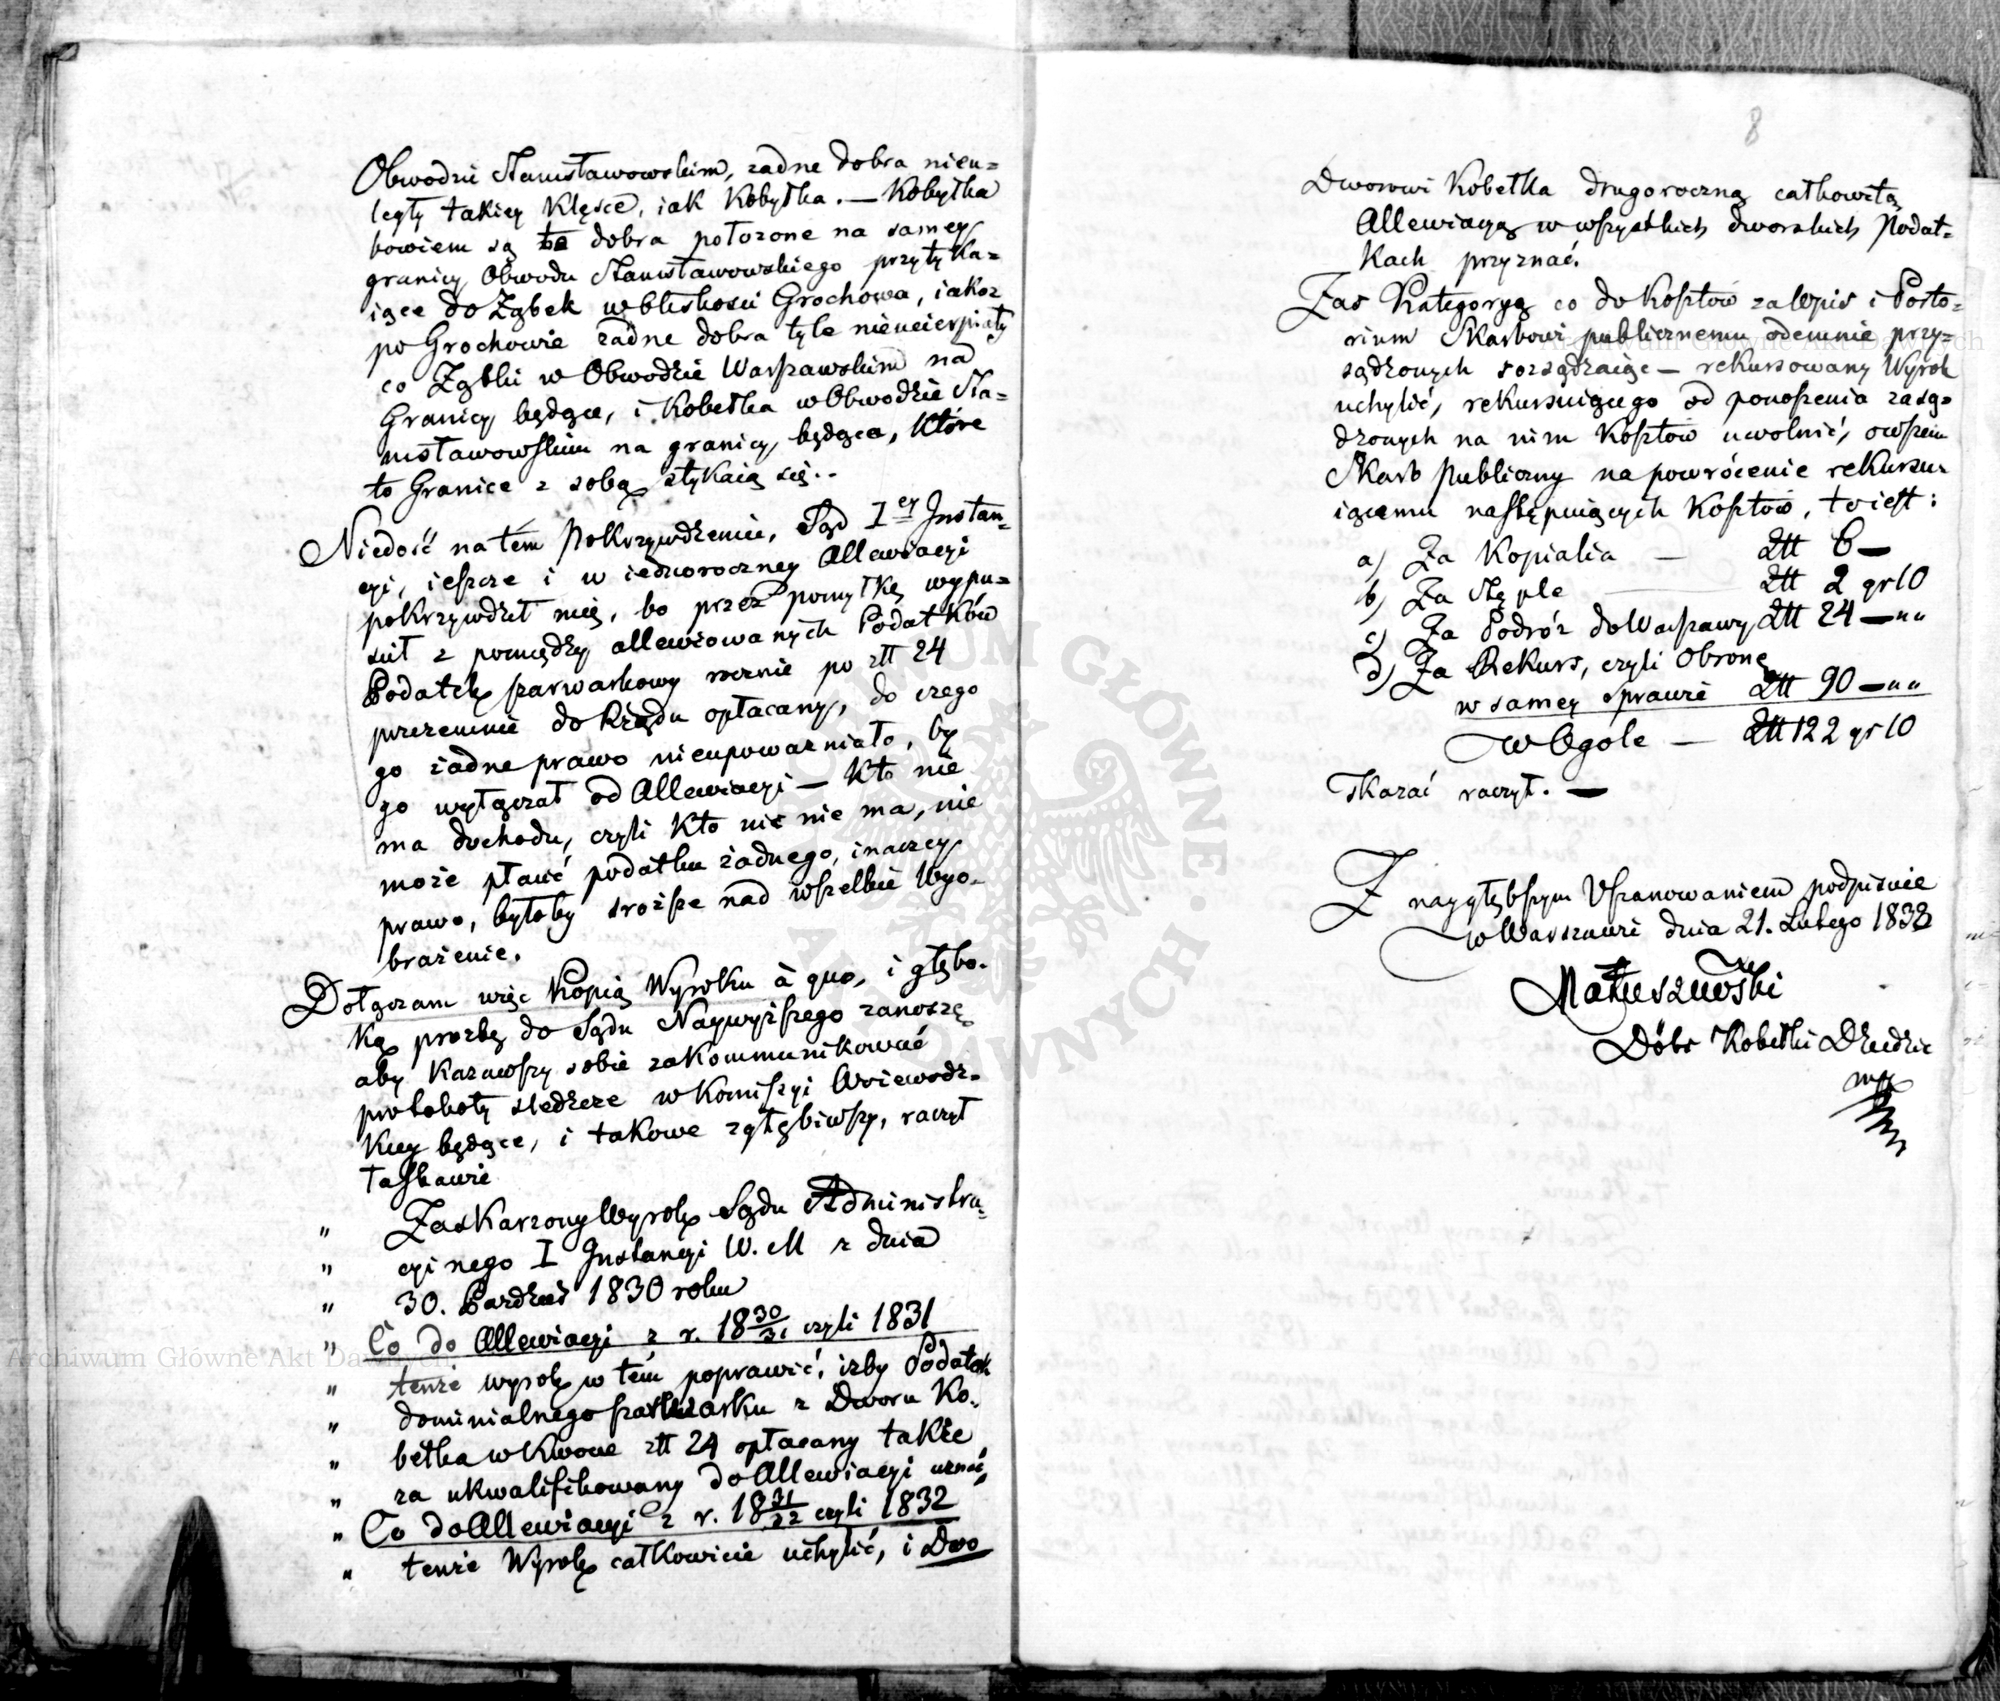 Obwodzie Stanisławowskim, żadne dobra nieu=
legły takiey Klęsce, iak Kobyłka. — Kobyłka
bowiem są te dobra położone na samey
granicy Obwodu Stanisławowskiego przytyka=
iące do Ząbek w bliskości Grochowa, iakoż
po Grochowie żadne dobra tyle nieucierpiały
co Ząbki w Obwodzie Warszawskim na
Granicy będące, i Kobełka w Obwodzie Sta=
nisławowskim na granicy będące, Które
to Granice z sobą stykaią się..
Niedość na tém Pokrzywdzeniu, Sąd I ey Instan=
cyi, ieszcze i w iednoroczney Allewiacyi
pokrzywdził mię, bo przez pomyłkę wypu=
ścił z pomiędzy allewiowanych Podatków
Podatek szarwarkowy rocznie po złt 24
przezemnie do Rządu opłacany, do czego
go żadne prawo nieupoważniało, by
go wyłączał od Allewiacyi — Kto nie
ma dochodu, czyli Kto nic nie ma, nie
może płacić podatku żadnego, inaczey
prawo, byłoby sroższe nad wszelkie Wyo-
brażenie.
Dołączam więc Kopią Wyroku à quo, i głębo-
Ką prozbę do Sądu Naywyższego zanoszę
aby Kazawszy sobie zakommunikować
protokoły śledcze w Komiszyi Woiewodz-
Kiey będące, i takowe zgłębiwszy, raczył
łaskawie
" Zaskarzony Wyrok Sądu Administra-
" cyinego I Instancyi W. M z dnia
" 30. Pazdzier 1830 roku
" Co do Allewiacyi z r. 18 30/31 czyli 1831
" tenże wyrok w tém poprawić, izby Podatek
" dominialnego szarwarku z Dworu Ko-
" bełka w Kwocie złt 24 opłacany także
" za ukwalifikowany do Allewiacyi uznać,
" Co do Allewiacyi z r. 18 31/32 czyli 1832
" tenże Wyrok całkowicie uchylić, i Dwo
8
Dworowi Kobełka drugoroczną całkowitą
Allewiacyą w wszystkich dworskich Podat=
Kach przyznać.
Zaś Kategoryą co do Kosztów za Wpis i Porto-
rium Skarbowi publicznemu odemnie przy=
sądzonych rozsądzaiąc — rekursowany Wyrok
uchylić, rekursuiącego od ponoszenia zasą=
dzonych na nim Kosztów uwolnić, owszem
Skarb Publiczny na powrócenie rekursu=
iącemu następuiących Kosztów, to iest:
a) Za Kopialia — Złt 6 —
b) Za Stęple Złt 2 gr 10
c) Za Podróż do Warszawy Złt 24 — " "
d) Za Rekurs, czyli Obronę
w samey sprawie Złt 90 — " "
w Ogole — Złt 122 gr 10
Skazać raczył. —
Z naygłębszym Uszanowaniem podpisuie
w Warszawie dnia 21. Lutego 1832
Matuszewski
Dóbr Kobełki Dziedzic
mp